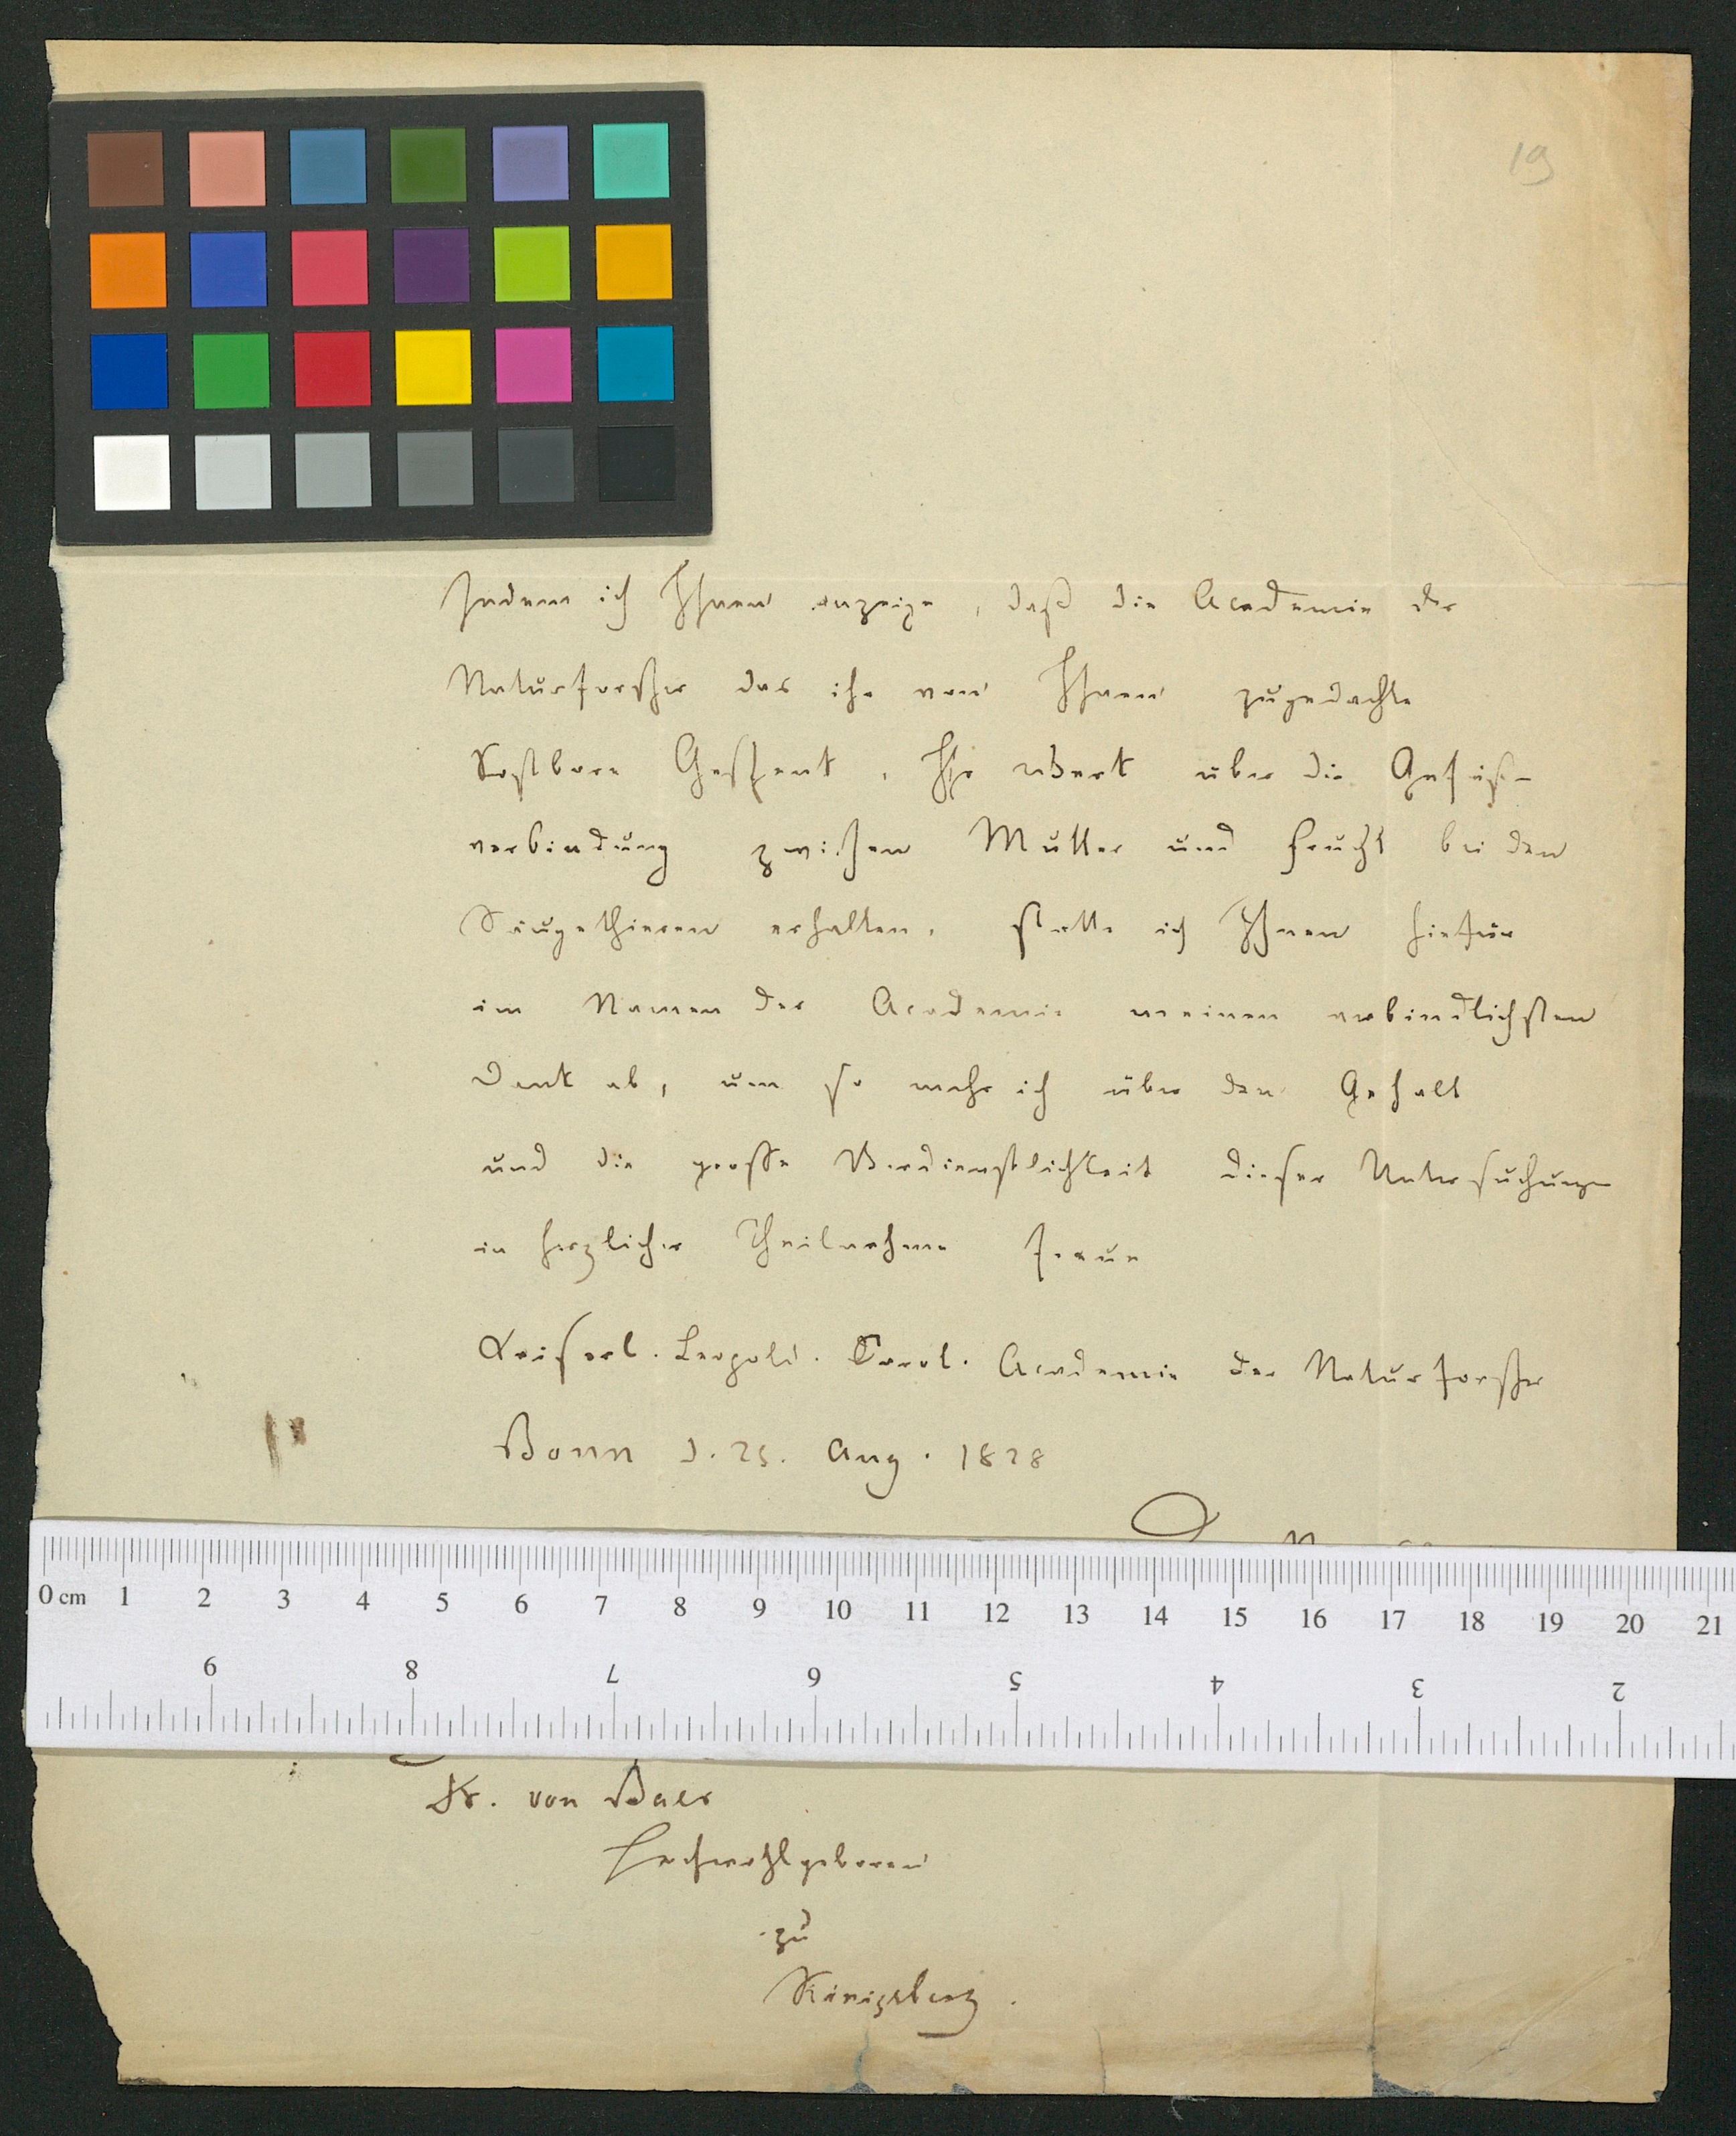 19
Indem ich Ihnen anzeige, daß die Academie der
Naturforscher das ihr von Ihnen zugedachte
kostbare Geschenk, Ihr Werk über die Gefäß-
verbindung zwischen Mutter und Frucht bei den
Säugethieren erhalten, statte ich Ihnen hiefür
im Namen der Academie meinen verbindlichsten
Dank ab, um so mehr ich über den Gehalt
und die große Verdienstlichkeit dieser Untersuchungen
in herzlicher Theilnahme freue
Kaiserl. Leopold. Carol. Academie der Naturforscher
Bonn d. 25. Aug. 1828
0 cm 1 2 3 4 5 6 7 8 9 10 11 12 13 14 15 16 17 18 19 20 21
9 8 7 6 5 4 3 2
Dr. von Baer
Hochwohlgeboren
zu
Königsberg.